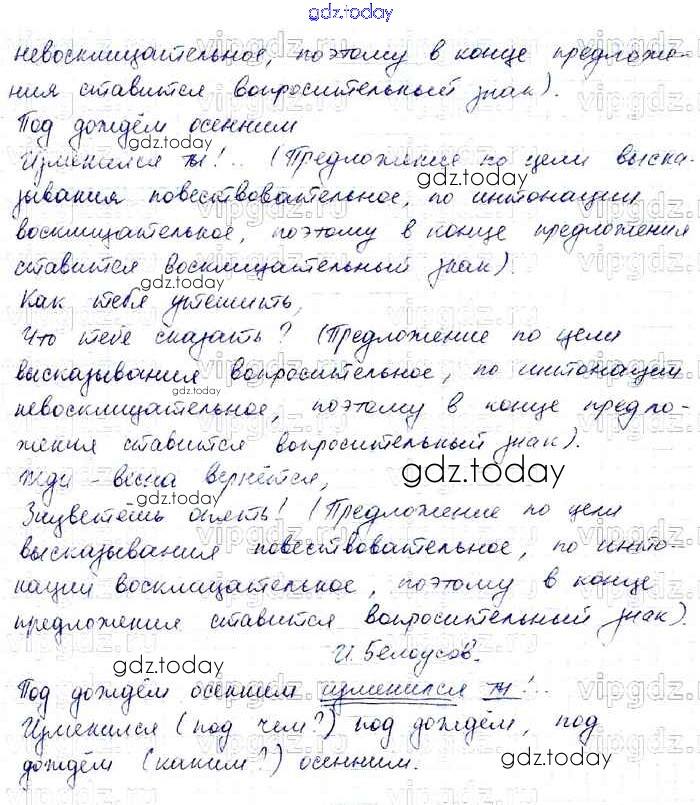 gdz.today
невосклицательное, поэтому в конце предложе-
ния ставится вопросительный знак).
Под дождём осенним
Изменился ты!.. (Предложение по цели выска-
зывания повествовательное, по интонации
восклицательное, поэтому в конце предложения
ставится восклицательный знак).
Как тебя утешить,
Что тебе сказать? (Предложение по цели
высказывания вопросительное, по интонации
невосклицательное, поэтому в конце предло-
жения ставится вопросительный знак).
Жди - весна вернётся,
Зацветёшь опять! (Предложение по цели
высказывания повествовательное, по инто-
нации восклицательное, поэтому в конце
предложения ставится вопросительный знак).
И. Белоусов.
Под дождём осенним изменился ты!..
Изменился (под чем?) под дождём, под
дождём (каким?) осенним.